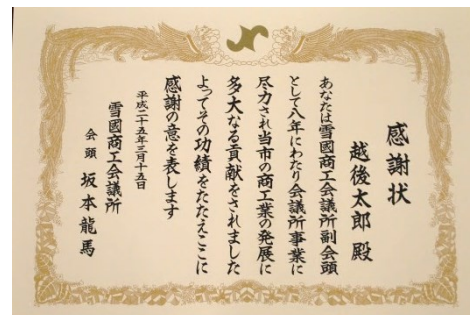 感謝状
越後太郎 殿
あなたは雪國商工会議所副会頭
として八年にわたり会議所事業に
尽力され当市の商工業の発展に
多大なる貢献をされました
よってその功績をたたえここに
感謝の意を表します
平成二十五年三月十五日
雪國商工会議所
会頭 坂本龍馬